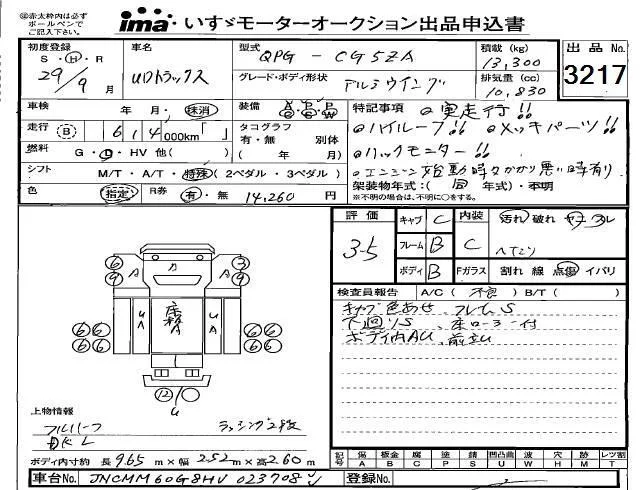 ※赤太枠内は必ず
ボールペンで
ご記入下さい。
ima いすゞモーターオークション出品申込書
初度登録 S・H・R 29年 9月
車名 UDトラックス
型式 QPG - CG5ZA
積載(kg) 13,300
出品No. 3217
グレード・ボディ形状 アルミウイング
排気量(cc) 10,830
車検 年 月・抹消
装備 A/C P/S P/W
特記事項 ◎実走行!!
走行 B 614000km「 」
タコグラフ 有・無 別体
◎ハイルーフ!! ◎メッキパーツ!!
燃料 G・D・HV 他( )
( 年 月)
◎バックモニター!!
シフト M/T・A/T・特殊(2ペダル・3ペダル)
◎エンジン始動時々かかり悪い時有り
色 指定 R券 有・無 14,260円
架装物年式:( 同 年式)・不明
※不明の場合は、不明に○をする。
評価 3-5
キャブ C 内装 C 汚れ 破れ
フレーム B ヘタリ
ボディ B Fガラス 割れ 線 点傷 イバリ
検査員報告 A/C( 不良 ) B/T( )
キャブ色あせ、フレームS
下回りS、
ボディ内AU、
6 9 A A 3 9
66 66 66 66
12
U
上物情報
フルハーフ ラッシング2段
ボディ内寸約 長 9.65 m×幅 2.52 m×高 2.60 m
記号 傷 A 板金 B 腐 C 塗 P 錆 S 凹凸曲 U 波 W 欠 Y 穴 H 色 M レツ割 T
車台No. JNCMM60G8HU023708
REMARK